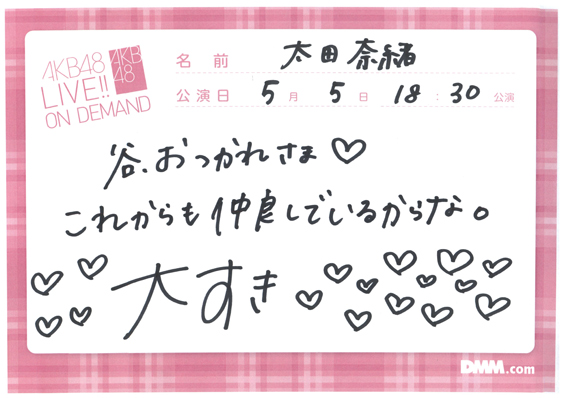 AKB48
LIVE!!
ON DEMAND
AKB
48
名前 太田奈緒
公演日 5月 5日 18:30 公演
谷、おつかれさま♡
これからも仲良しでいるからな。
大すき
DMM.com